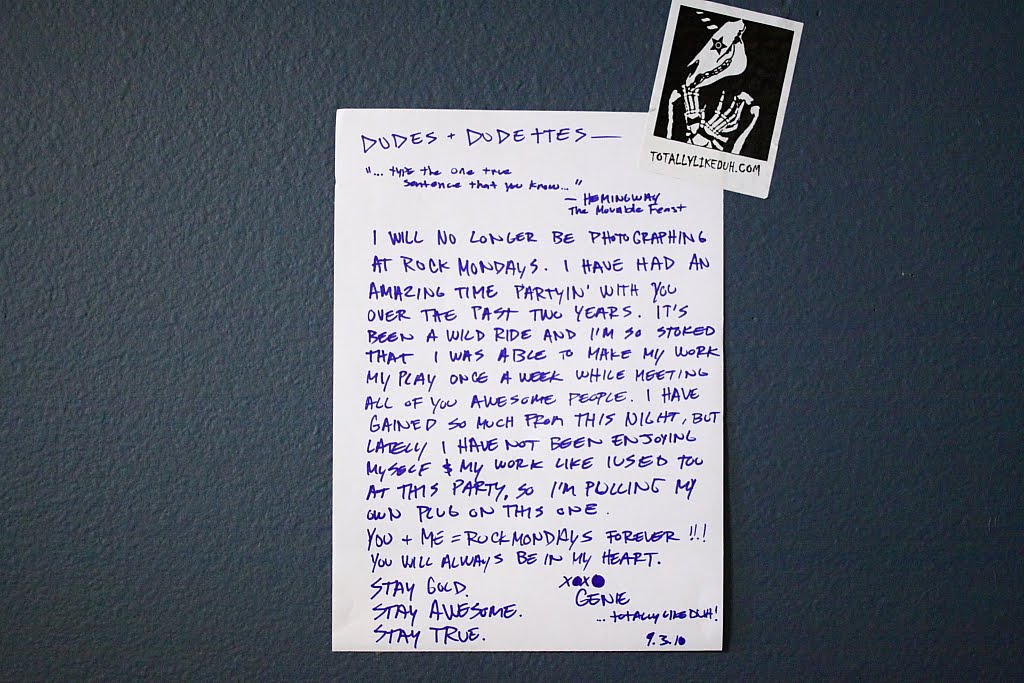 DUDES + DUDETTES —
"... type the one true
sentence that you know..."
— HEMINGWAY
The Movable Feast
I WILL NO LONGER BE PHOTOGRAPHING
AT ROCK MONDAYS. I HAVE HAD AN
AMAZING TIME PARTYIN' WITH YOU
OVER THE PAST TWO YEARS. IT'S
BEEN A WILD RIDE AND I'M SO STOKED
THAT I WAS ABLE TO MAKE MY WORK
MY PLAY ONCE A WEEK WHILE MEETING
ALL OF YOU AWESOME PEOPLE. I HAVE
GAINED SO MUCH FROM THIS NIGHT, BUT
LATELY I HAVE NOT BEEN ENJOYING
MYSELF & MY WORK LIKE I USED TOO
AT THIS PARTY, SO I'M PULLING MY
OWN PLUG ON THIS ONE.
YOU + ME = ROCKMONDAYS FOREVER !!!
YOU WILL ALWAYS BE IN MY HEART.
STAY GOLD.
STAY AWESOME.
STAY TRUE.
XOXO
GENIE
... TOTALLY LIKE DUH!
9.3.10
TOTALLYLIKEDUH.COM